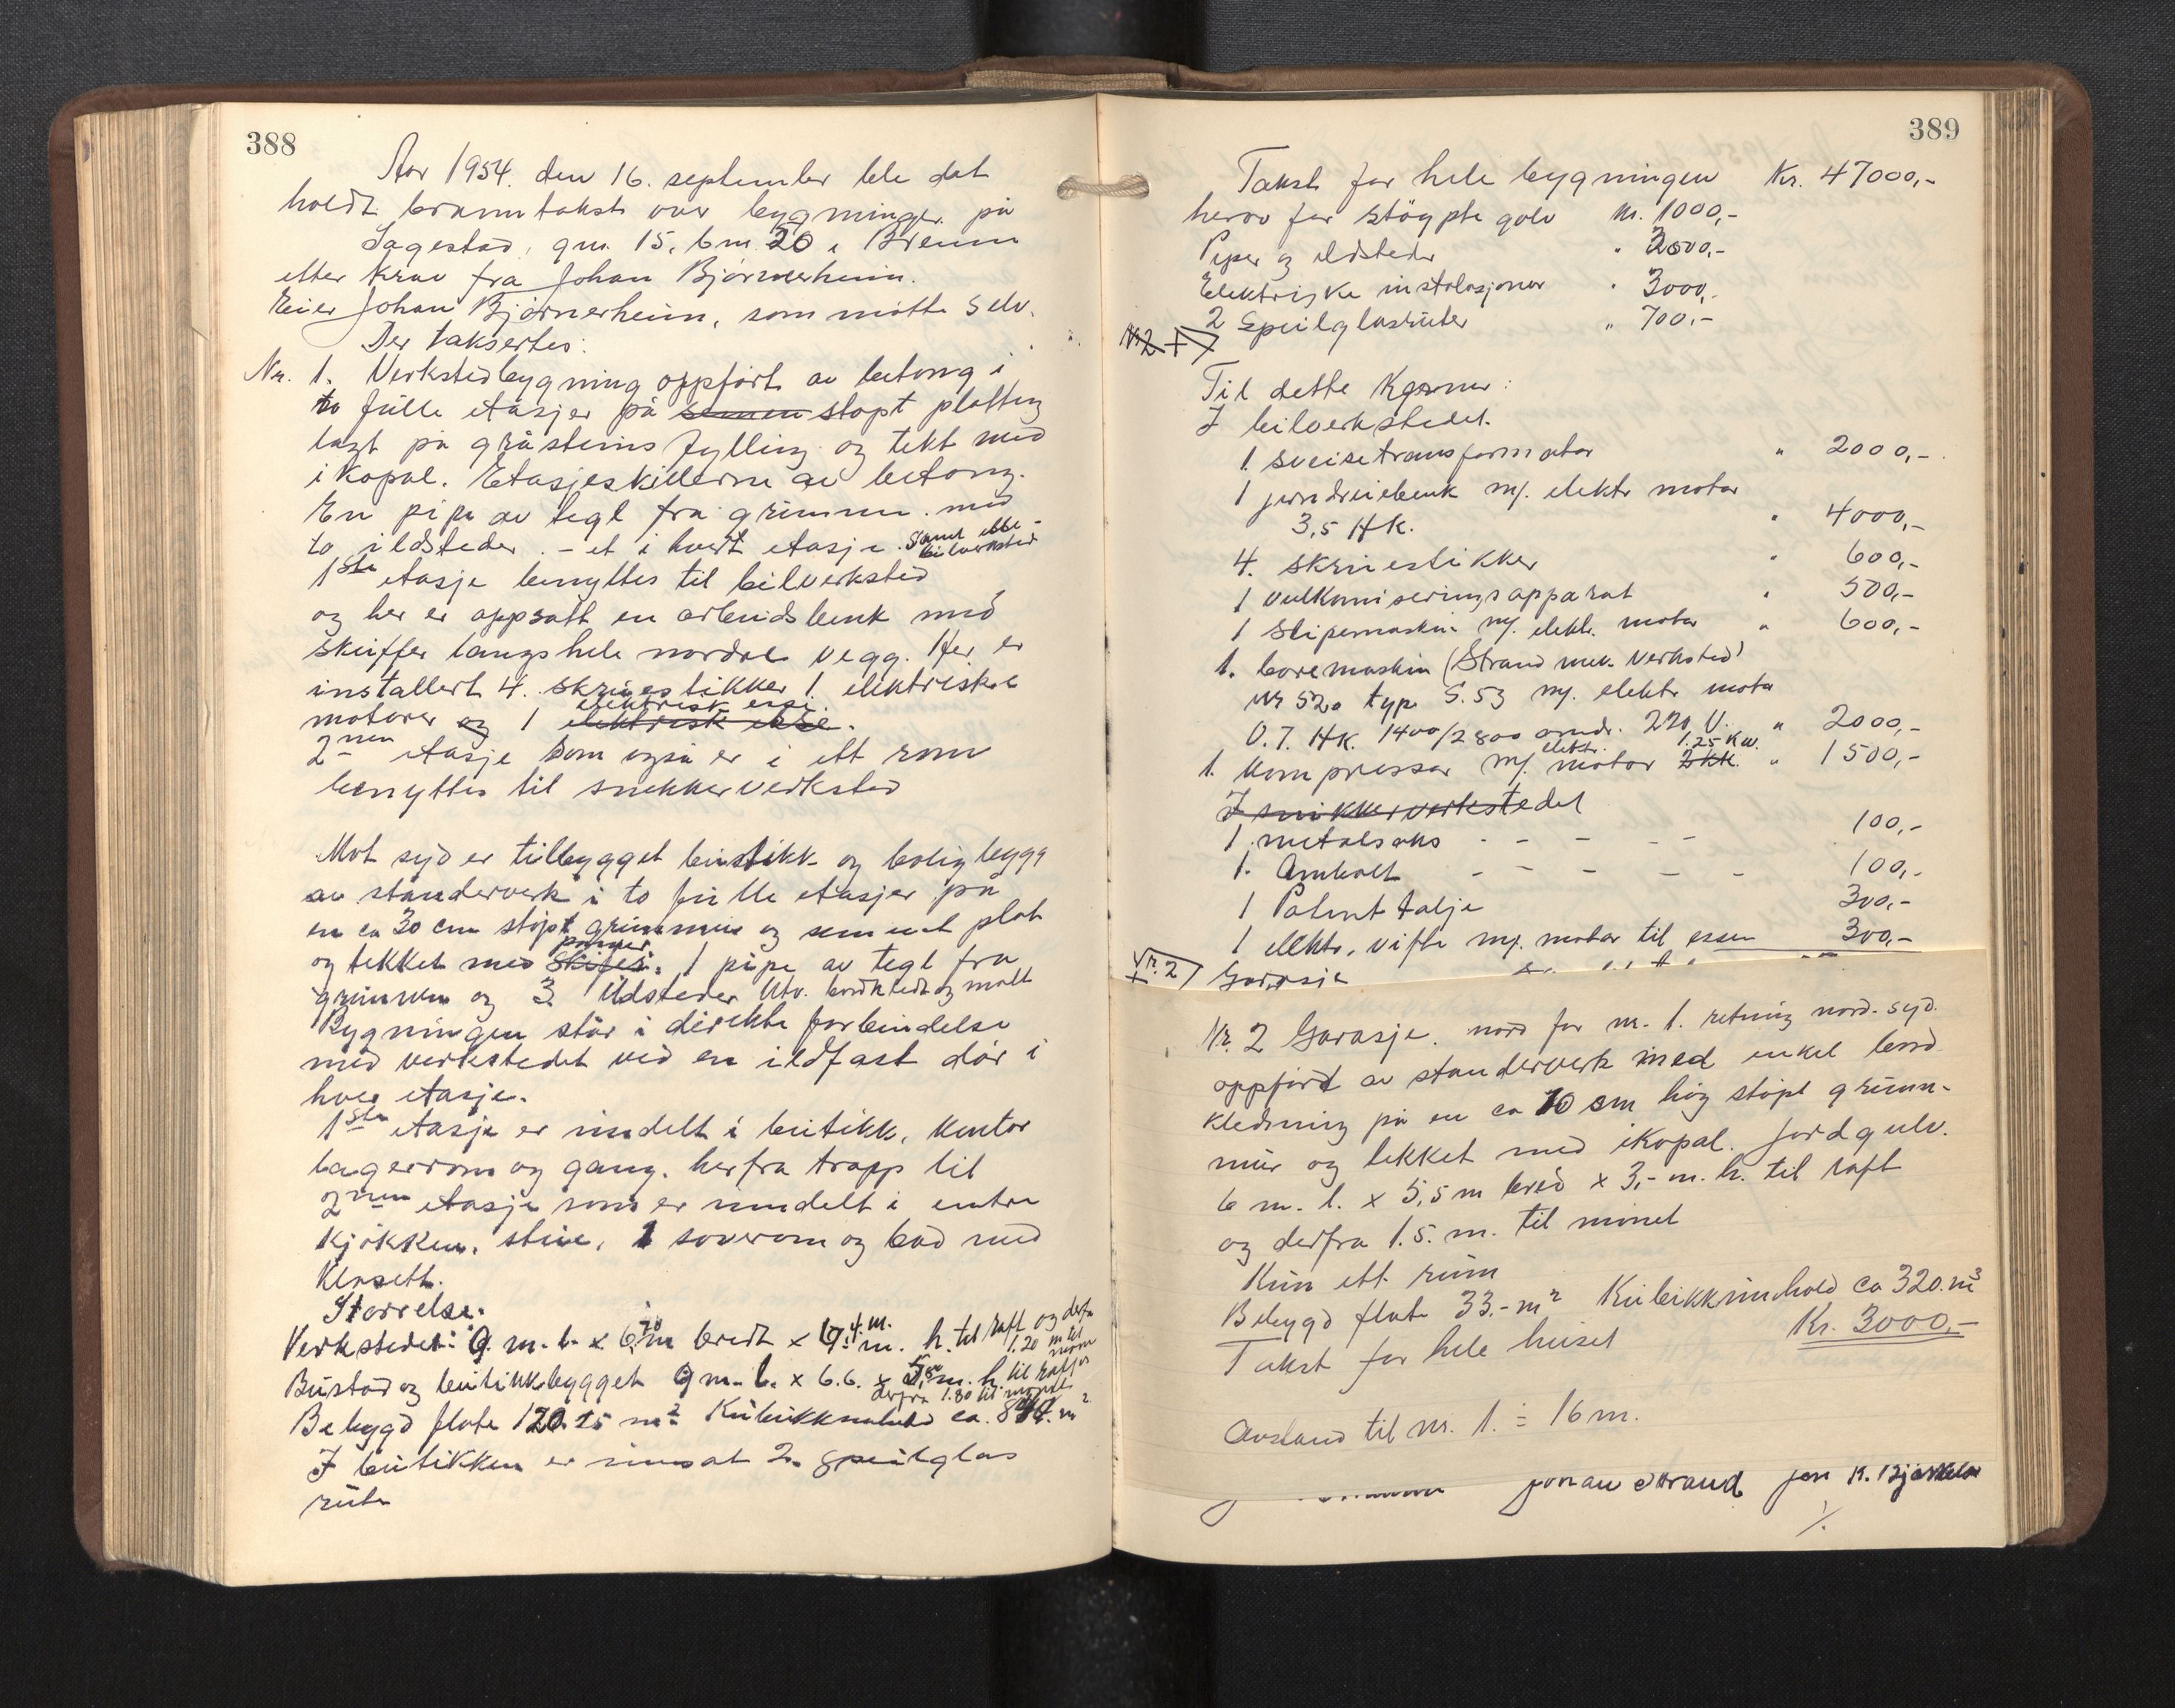 388
Aar 1954. den 16. september ble det
holdt branntakst over bygninger på
Sagestad, gnr. 15, bnr. 20 i Breim
etter krav fra Johan Bjørnerheim.
Eier Johan Bjørnerheim, som møtte selv.
Der taksertes:
Nr. 1. Verkstedbygning oppført av betong i
to fulle etasjer på semen støpt platting
lagt på gråsteins fylling og tekt med
ikopal. Etasjeskillerne av betong.
En pipe av tegl fra grunnen med
to ildsteder. - et i hvert etasje. Samt esse - bilverksted
1ste etasje benyttes til bilverksted
og her er oppsatt en arbeidsbenk med
skuffer langs hele nordre vegg. Her er
installert 4. skruestikker 1. elektriske
elektrisk esse.
motorer og 1 elektrisk esse.
2nen etasje som også er i ett rom
benyttes til snekkerverksted
Mot syd er tilbygget butikk- og bolig bygg
av standerverk i to fulle etasjer på
en ca 30 cm støpt grunnmur og sement plat
panner
og tekket med skifer. 1 pipe av tegl fra
grunnen og 3. ildsteder. Utv. bordkledt og malt
Bygningen står i direkte forbindelse
med verkstedet ved en ildfast dør i
hver etasje.
1ste etasje er inndelt i butikk, kontor
lagerrom og gang. herfra trapp til
2nen etasje som er inndelt i entre
kjøkken, stue, 1 soverom og bad med
klosett.
Størrelse.
Verkstedet: 9. m. l. x 6.70 m bredt x 4. m. h. til raft og derfra 1.20 m til møne
Bustad og butikkbygget 9 m. l. x 6.6. x m. h. til raft og
derfra 1.80 til mønet.
Bebygd flate 120.15 m2 Kubikkinnhold ca.
I butikken er innsat 2. speilglas
rute
389
Takst for hele bygningen Kr. 47000,-
herav for støypte golv kr. 1000,-
Piper og ildsteder " 2000,-
Elektriske instalasjoner " 3000,-
2 speilglasruter " 700,-
Nr 2 +
Til dette kommer:
I bilverkstedet.
1 sveisetransformator " 2000,-
1 jerndreiebenk m/. elektr motor
3,5 Hk. " 4000,-
4. skruestikker " 600,-
1 vulkaniseringsapparat " 500,-
1 slipemaskin m/. elektr. motor " 600,-
1. boremaskin (Strand mek. verksted)
Nr 520 type S.53 m/. elektr motor
0.7. Hk. 1400/2800 omdr. 220 V. " 2000,-
elektr. 1.25 Kw.
1. kompressor m/. motor 2 Hk. " 1500,-
I snikkerverkstedet
1 metalsaks - - - - 100,-
1. Ambolt - - - - - 100,-
1 Patent talje 300,-
1 elektr. vifte m/. motor til essen 300,-
Nr. 2 Garasje
Nr. 2 Garasje. nord for nr. 1. retning nord-syd.
oppført av standerverk med enkel bord
kledning på en ca 10 cm høg støpt grunn-
mur og tekket med ikopal. Jordgulv.
6 m. l. x 5,5 m bred x 3,- m. h. til raft
og derfra 1.5. m. til mønet
Kun ett rum
Bebygd flate 33.- m2 Kubikkinnhold ca 320. m3
Takst for hele huset Kr. 3000,-
Avstand til nr. 1. = 16 m.
Johan Strand Jon K. Bjørkelo